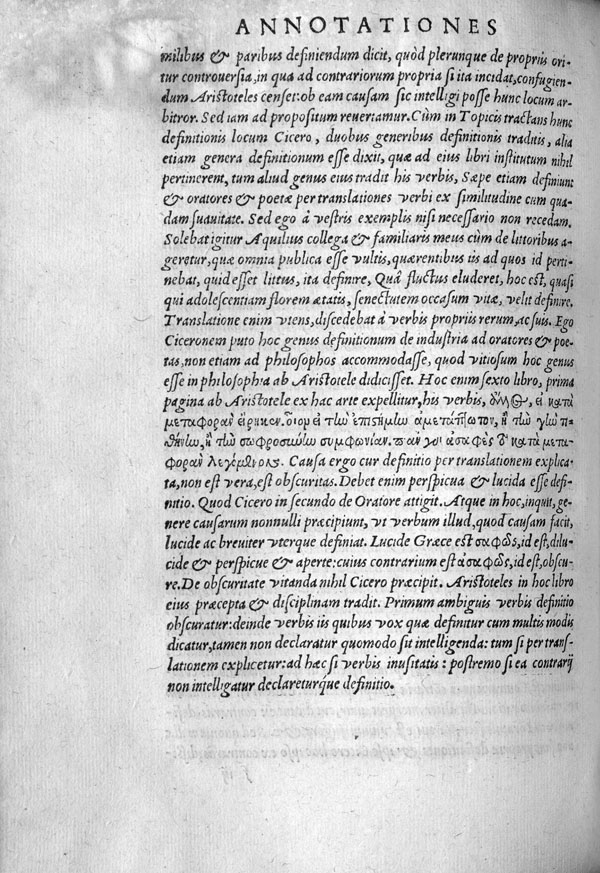 ANNOTATIONES
milibus & paribus definiendum dicit, quòd plerunque de propriis ori-
tur controuersia, in qua ad contrariorum propria si ita incidat, confugien-
dum Aristoteles censet: ob eam causam sic intelligi posse hunc locum ar-
bitror. Sed iam ad propositum reuertamur. Cùm in Topicis tractans hunc
definitionis locum Cicero, duobus generibus definitionis traditis, alia
etiam genera definitionum esse dixit, quæ ad eius libri institutum nihil
pertinerent, tum aliud genus eius tradit his verbis, Sæpe etiam definiunt
& oratores & poetæ per translationes verbi ex similitudine cum qua-
dam suauitate. Sed ego à vestris exemplis nisi necessario non recedam.
Solebat igitur Aquilius collega & familiaris meus cùm de littoribus a-
geretur, quæ omnia publica esse vultis, quærentibus iis ad quos id perti-
nebat, quid esset littus, ita definire, Quâ fluctus eluderet, hoc est, quasi
qui adolescentiam florem ætatis, senectutem occasum vitæ, velit definire.
Translatione enim vtens, discedebat à verbis propriis rerum, ac suis. Ego
Ciceronem puto hoc genus definitionum de industria ad oratores & poe-
tas, non etiam ad philosophos accommodasse, quod vitiosum hoc genus
esse in philosophia ab Aristotele didicisset. Hoc enim sexto libro, prima
pagina ab Aristotele ex hac arte expellitur, his verbis, ἄλλος, εἰ κατὰ
μεταφορὰν εἴρηκεν. οἷον εἰ τὴν ἐπιστήμην ἀμετάπτωτον, ἢ τὴν γῆν τι-
θήνην, ἢ τὴν σωφροσύνην συμφωνίαν. πᾶν γὰρ ἀσαφὲς τὸ κατὰ μετα-
φορὰν λεγόμενον. Causa ergo cur definitio per translationem explica-
ta, non est vera, est obscuritas. Debet enim perspicua & lucida esse defi-
nitio. Quod Cicero in secundo de Oratore attigit. Atque in hoc, inquit, ge-
nere causarum nonnulli præcipiunt, vt verbum illud, quod causam facit,
lucide ac breuiter vterque definiat. Lucide Græce est σαφῶς, id est, dilu-
cide & perspicue & aperte: cuius contrarium est ἀσαφῶς, id est, obscu-
re. De obscuritate vitanda nihil Cicero præcipit. Aristoteles in hoc libro
eius præcepta & disciplinam tradit. Primum ambiguis verbis definitio
obscuratur: deinde verbis iis quibus vox quæ definitur cum multis modis
dicatur, tamen non declaratur quomodo sit intelligenda: tum si per trans-
lationem explicetur: ad hæc si verbis inusitatis: postremo si ea contrarij
non intelligatur declareturque definitio.